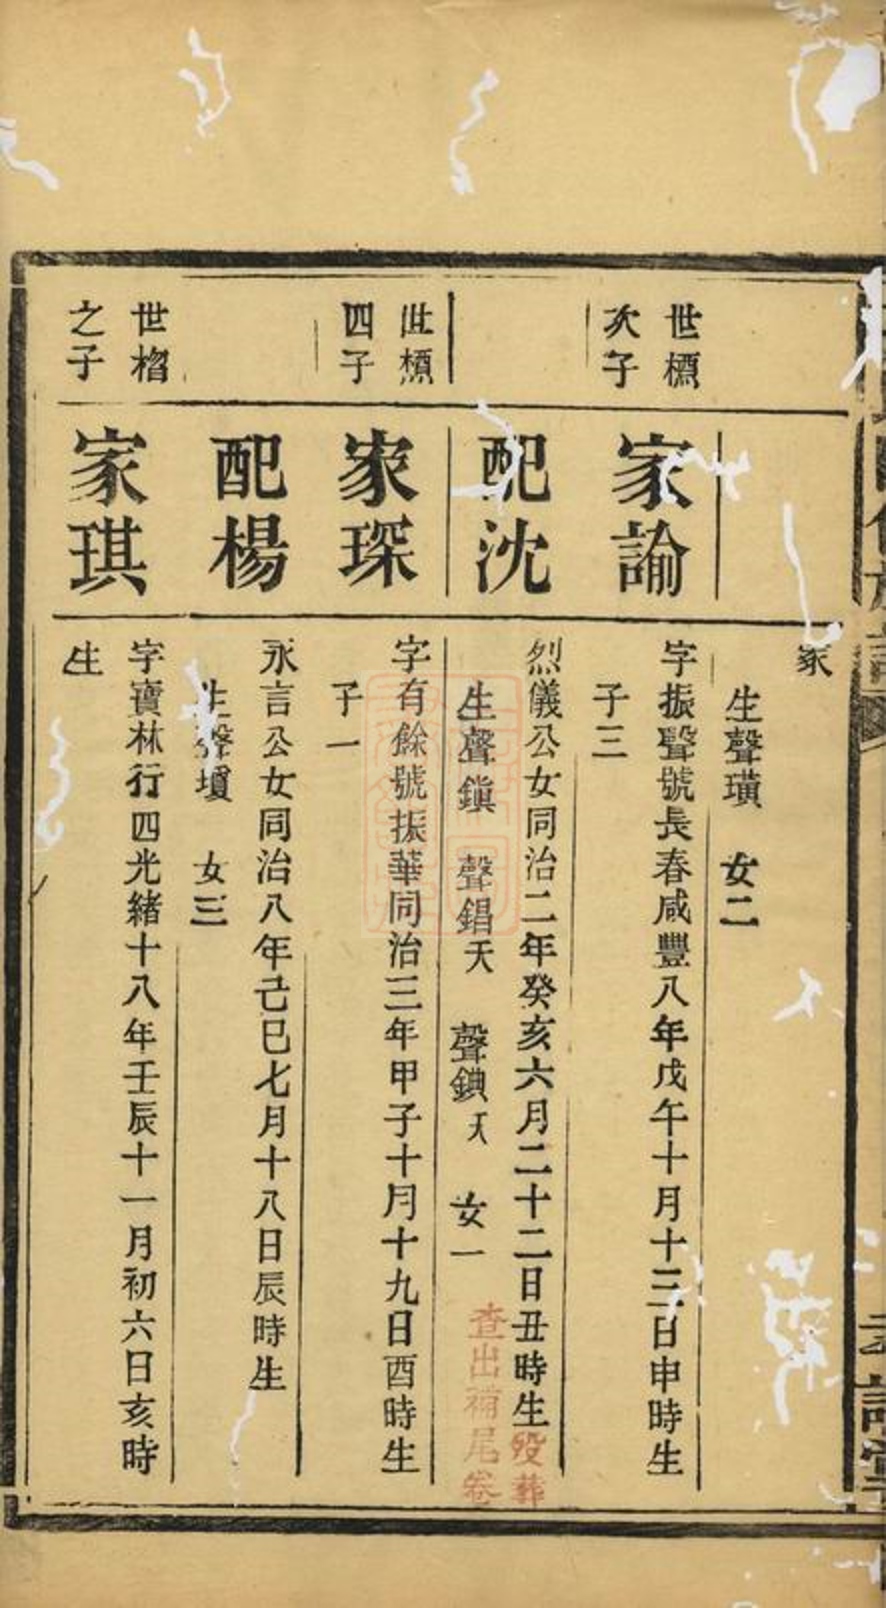 家
生聲璜　女二
世標
次子
家諭
字振聲號長春咸豐八年戊午十月十三日申時生
子三
配沈
烈儀公女同治二年癸亥六月二十二日丑時生
歿葬
生聲鎮　聲錩夭　聲錪夭　女一
查出補尾卷
世標
四子
家琛
字有餘號振華同治三年甲子十月十九日酉時生
子一
配楊
永言公女同治八年己巳七月十八日辰時生
生聲壝　女三
世榴
之子
家琪
字寶林行四光緒十八年壬辰十一月初六日亥時
生